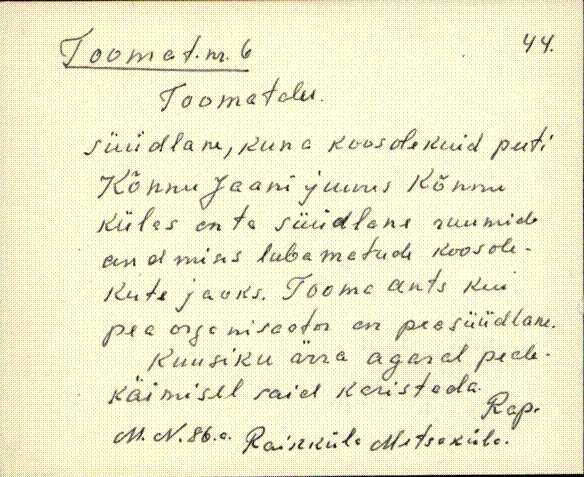 Toomat. nr. 6
44.
Toomatdu.
süüdlane, kuna koosolekuid peeti
Kõnnu Jaani juures Kõnnu
külas on ta süüdlane ruumide
andmises lubamatude koosole-
kute jaoks. Tooma Ants kui
pea organisaator on peasüüdlane.
Kuusiku ärra agaral peale-
käimisel said karistada.
Rap.
M. N. 86.a. Raikküla Metsaküla.